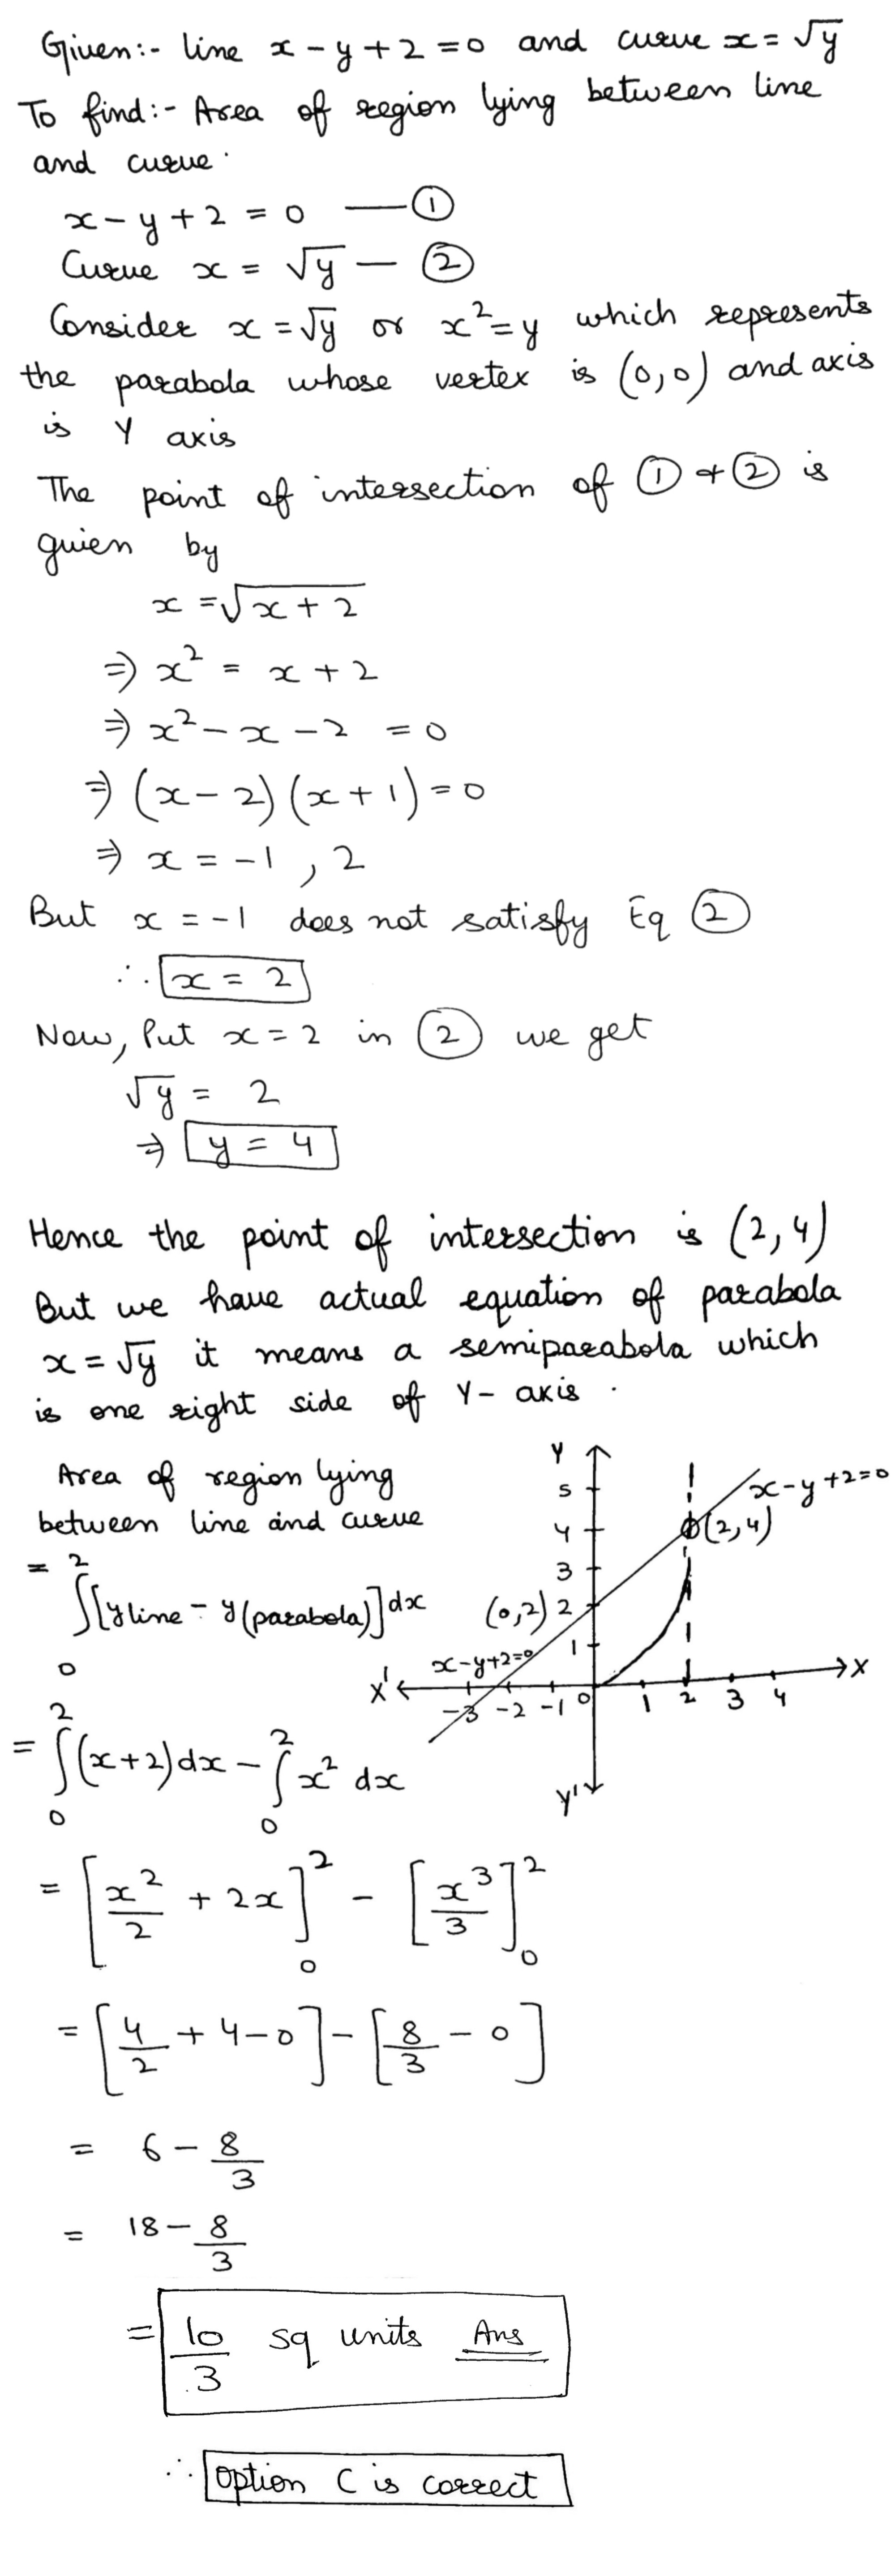 Given:- line x - y + 2 = 0 and curve x = √y
To find:- Area of region lying between line
and curve.
x - y + 2 = 0 —①
Curve x = √y — ②
Consider x = √y or x² = y which represents
the parabola whose vertex is (0,0) and axis
is Y axis
The point of intersection of ① + ② is
given by
x = √x + 2
⇒ x² = x + 2
⇒ x² - x - 2 = 0
⇒ (x - 2) (x + 1) = 0
⇒ x = -1 , 2
But x = -1 does not satisfy Eq ②
∴ x = 2
Now, Put x = 2 in ② we get
√y = 2
⇒ y = 4
Hence the point of intersection is (2,4)
But we have actual equation of parabola
x = √y it means a semiparabola which
is one right side of Y - axis .
Area of region lying
between line and curve
= 2
∫[y line - y (parabola)] dx
0
= ∫₀²(x+2) dx - ∫₀² x² dx
= [x²/2 + 2x]₀² - [x³/3]₀²
= [4/2 + 4 - 0] - [8/3 - 0]
= 6 - 8/3
= 18 - 8/3
= 10/3 sq units Ans
∴ Option C is correct
Y
5
4
3
2
1
x - y + 2 = 0
(2,4)
(0,2)
x - y + 2 = 0
X'
-3 -2 -1 0 1 2 3 4
X
Y'